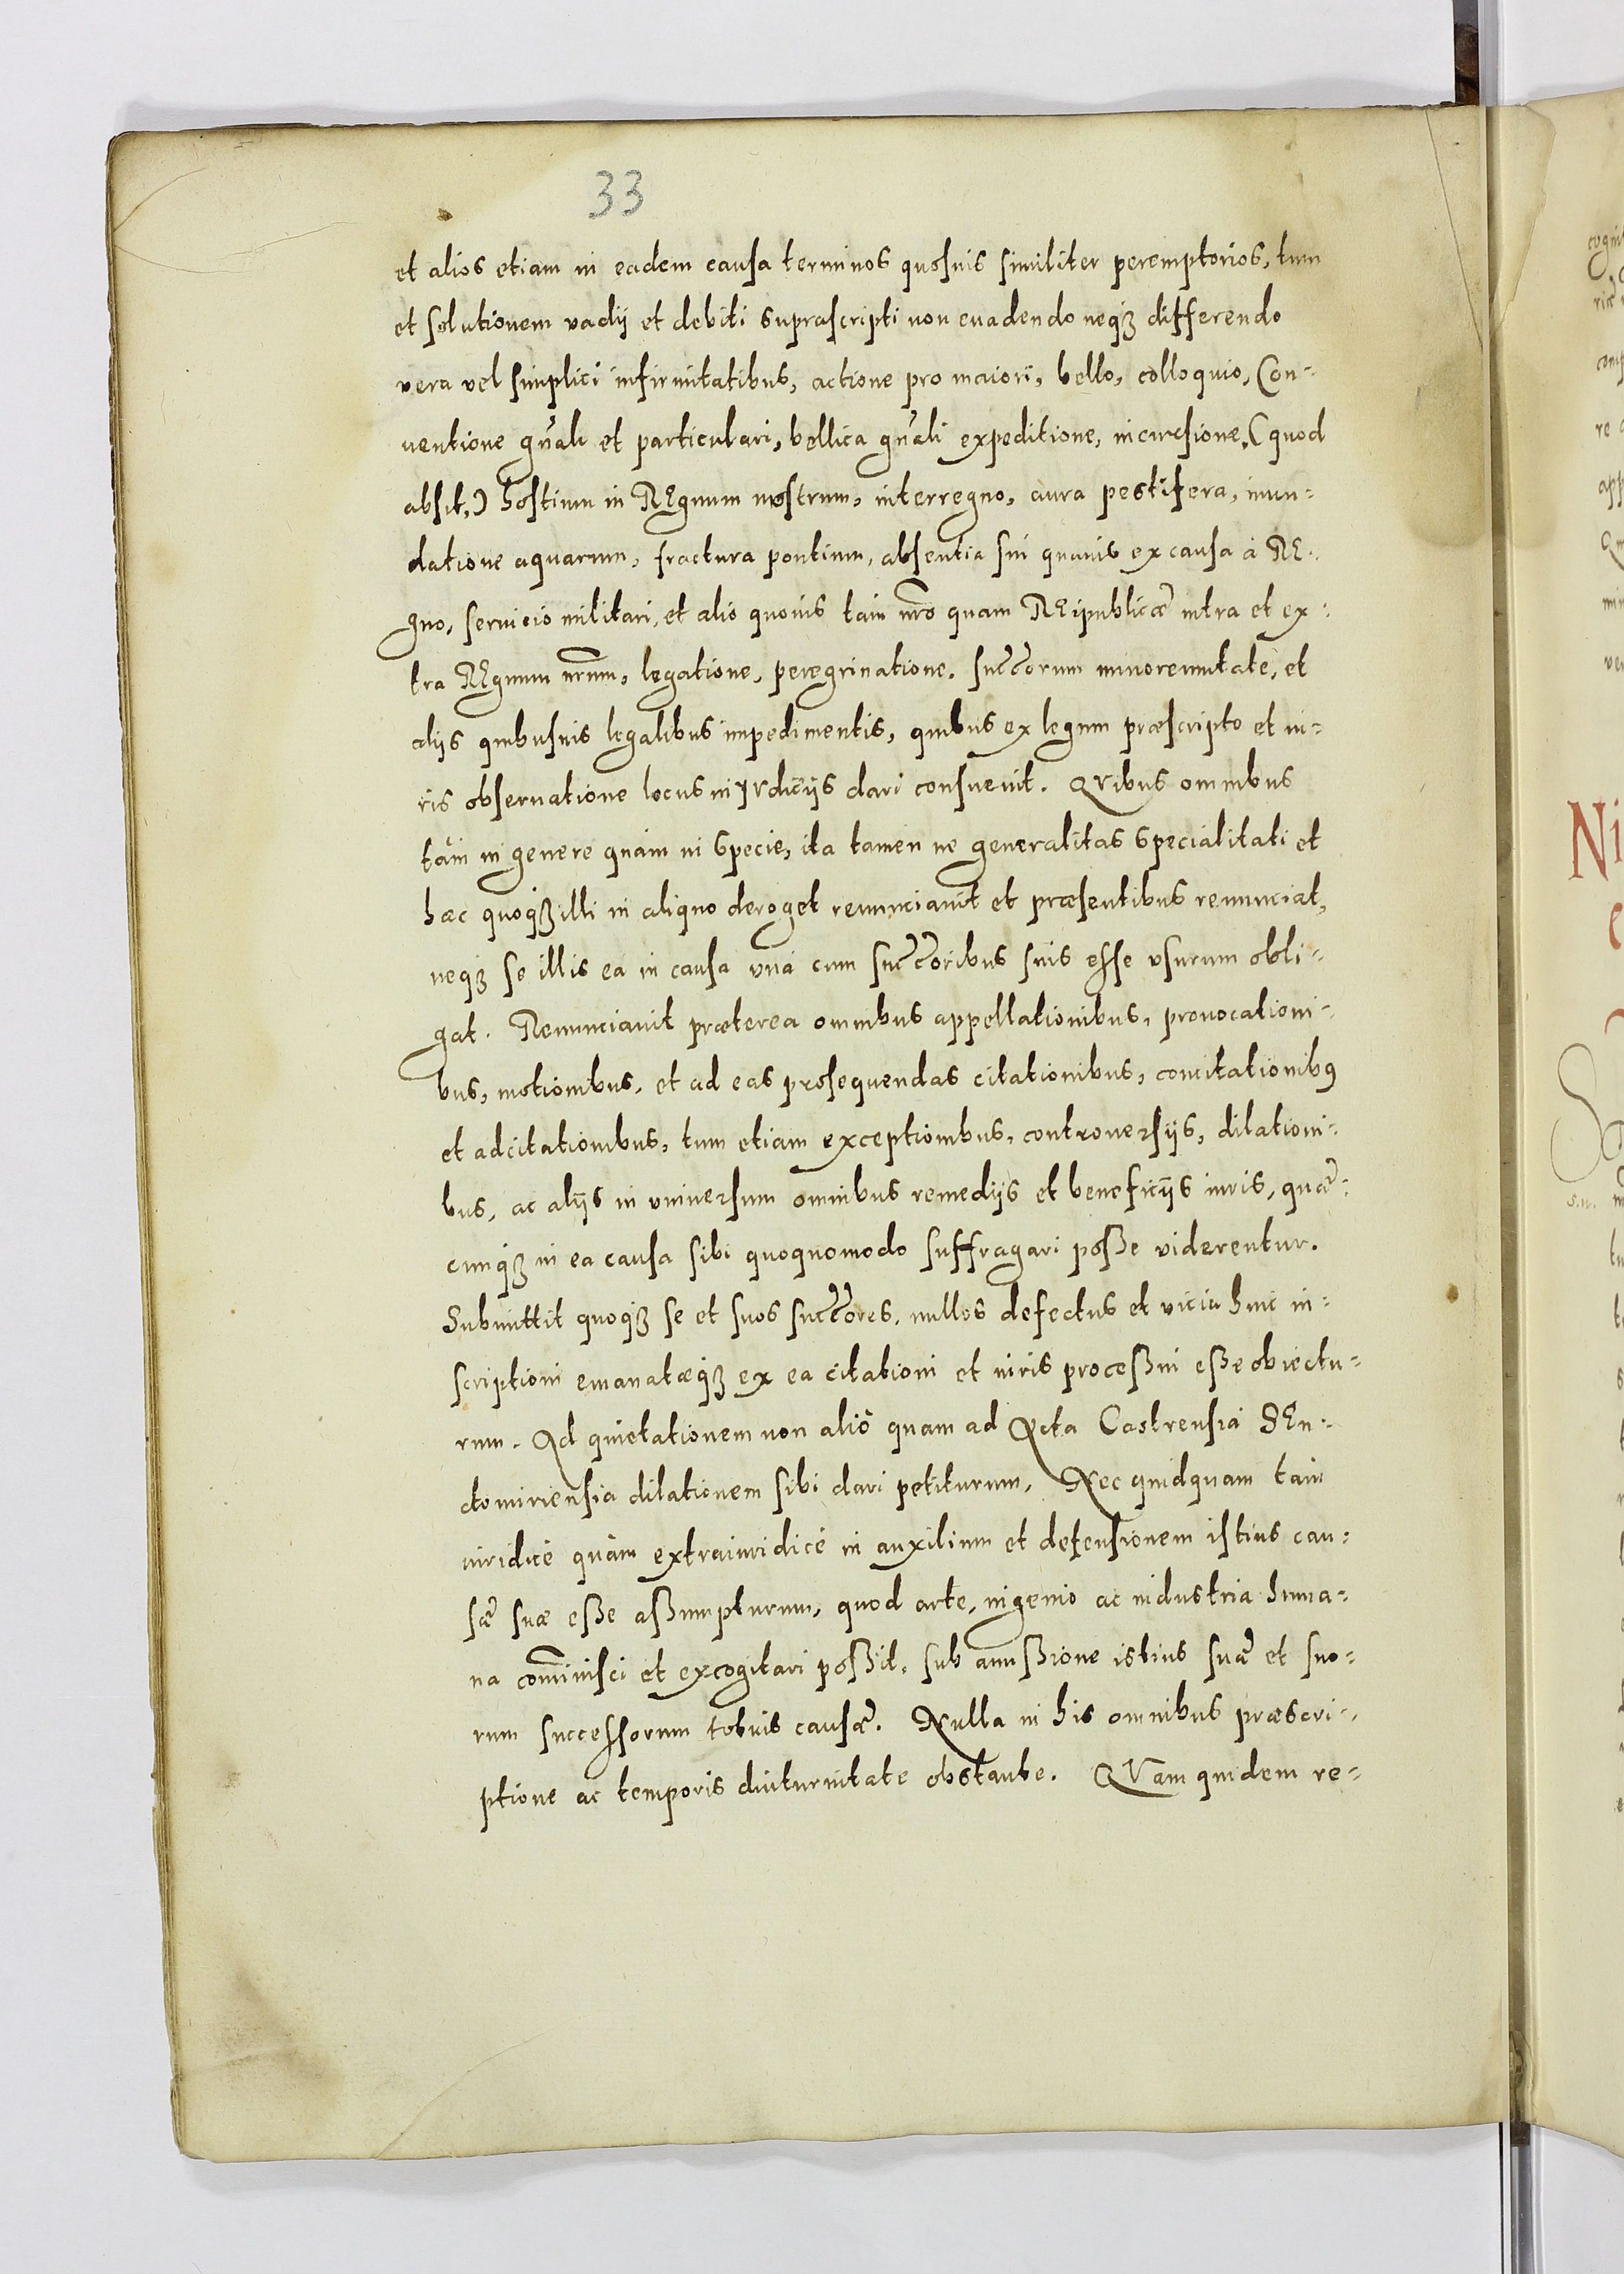 33
et alios etiam in eadem causa terminos quosuis similiter peremptorios, tum
et solutionem vadij et debiti suprascripti non euadendo neqȝ differendo
vera vel simplici infirmitatibus, actione pro maiori, bello, colloquio, Con-
uentione gn̄ali et particulari, bellica gn̄ali expeditione, incursione, (quod
absit,) hostium in REgnum nostrum, interregno, aura pestifera, inun-
datione aquarum, fractura pontium, absentia sui quauis ex causa à RE-
gno, seruicio militari, et alio quouis tam nr̄o quam REipublicæ intra et ex-
tra REgnum nr̄um, legatione, peregrinatione. succ̄orum minorennitate, et
alijs quibusuis legalibus impedimentis, quibus ex legum præscripto et iu-
ris obseruatione locus in IVdicijs dari consueuit. QVibus omnibus
tàm in genere quàm in Specie, ita tamen ne generalitas specialitati et
hæc quoqȝ illi in aliquo deroget renunciauit et præsentibus renunciat,
neqȝ se illis ea in causa vnà cum succ̄oribus suis esse vsurum obli-
gat. Renunciauit præterea omnibus appellationibus, prouocationi-
bus, motionibus, et ad eas prosequendas citationibus, concitationibꝰ
et adcitationibus, tum etiam exceptionibus, controuersijs, dilationi-
bus, ac alijs in vniuersum omnibus remedijs et beneficijs iuris, quæ-
cunqȝ in ea causa sibi quoquomodo suffragari poße viderentur.
Submittit quoqȝ se et suos succ̄ores, nullos defectus et vicia huic in-
scriptioni emanatæqȝ ex ea citationi et iuris proceßui eße obiectu-
rum. Ad quietationem non aliò quam ad Acta Castrensia SEn-
domiriensia dilationem sibi dari petiturum. Nec quidquam tam
iuridicè quàm extraiuridicè in auxilium et defensionem istius cau-
sæ suæ eße aßumpturum, quod arte, ingenio ac industria huma-
na com̄inisci et excogitari poßit, sub amißione istius suæ et suo-
rum successorum totius causæ. Nulla in his omnibus præscri-
ptione ac temporis diuturnitate obstante. QVam quidem re-